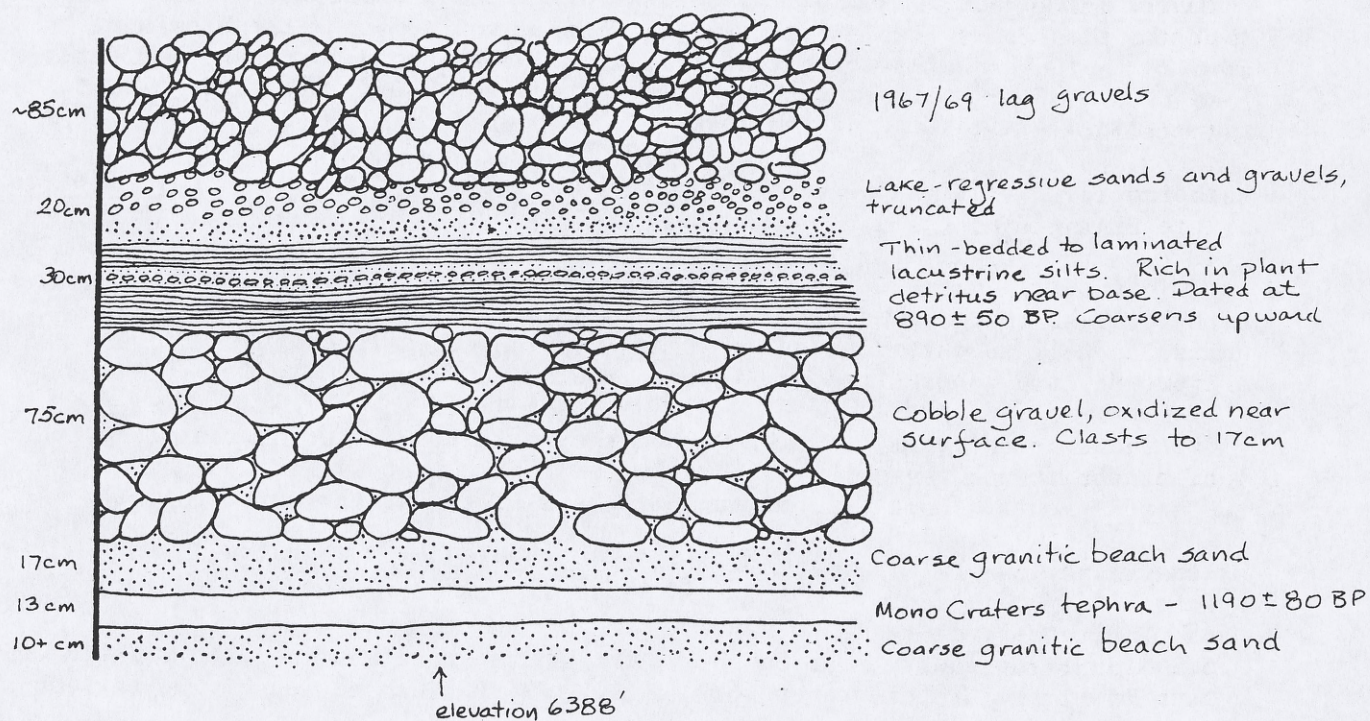 ~85cm
1967/69 lag gravels
20cm
Lake-regressive sands and gravels,
truncated
30cm
Thin-bedded to laminated
lacustrine silts. Rich in plant
detritus near base. Dated at
890±50 BP. Coarsens upward
75cm
Cobble gravel, oxidized near
surface. Clasts to 17cm
17cm
Coarse granitic beach sand
13 cm
Mono Craters tephra - 1190±80 BP
10+ cm
Coarse granitic beach sand
↑
elevation 6388'